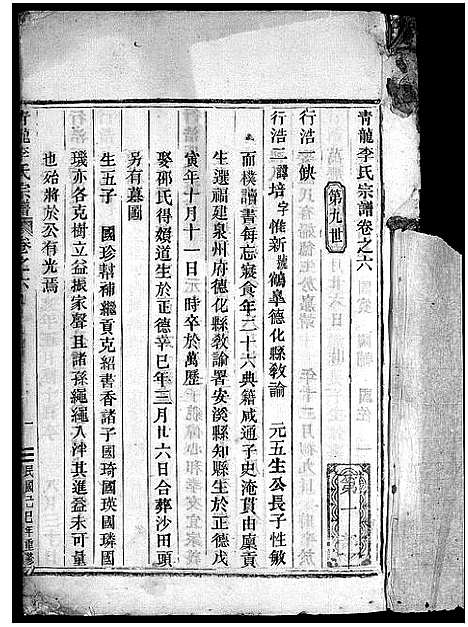 青龍李氏宗譜卷之六
第九世
行浩一缺
行浩二諱培字惟新號鶴皐德化縣教諭 元五生公長子性敏
而樸讀書每忘寢食年二十六典籍咸通子史淹貫由廩貢
生選福建泉州府德化縣教諭署安溪縣知縣生於正德戊
寅年十月十一日元時卒於萬歷
娶邵氏得娠道生於正德辛巳年三月廿六日合葬沙田頭
另有墓圖
生五子 國珍幫補繼貢克紹書香諸子國琦國瑛國璘國
璣亦各克樹立益振家聲且諸孫繩繩入泮其進益未可量
也始將於公有光焉
青龍李氏宗譜 卷之六 一
民國己巳年重修
第一